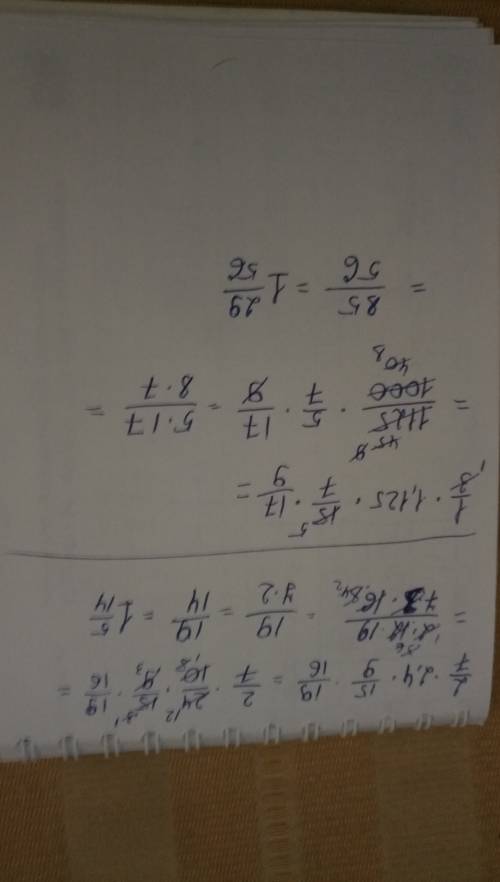 2/7 · 2,4 · 15/9 · 19/16 = 2/7 · 24/10 · 15/9 · 19/16 =
= 19/(7·2) = 19/14 = 1 5/14
1/3 · 1,125 · 15/7 · 17/9 =
= 1125/1000 · 5/7 · 17/9 = 5·17/8·7 =
= 85/56 = 1 29/56